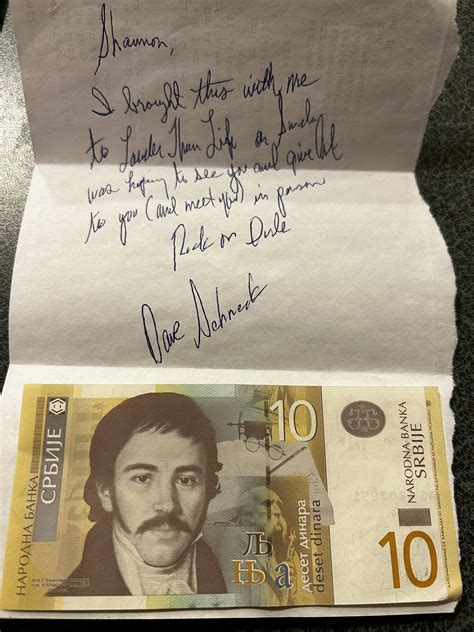 Shannon,
I brought this with me
to Louder Than Life on Sunday
was hoping to see you and give it
to you (and meet you) in person
Rock on Dude
Dave Schneck
НАРОДНА БАНКА
СРБИЈЕ
10
NARODNA BANKA
SRBIJE
Љ
Њ a
десет динара
deset dinara
10